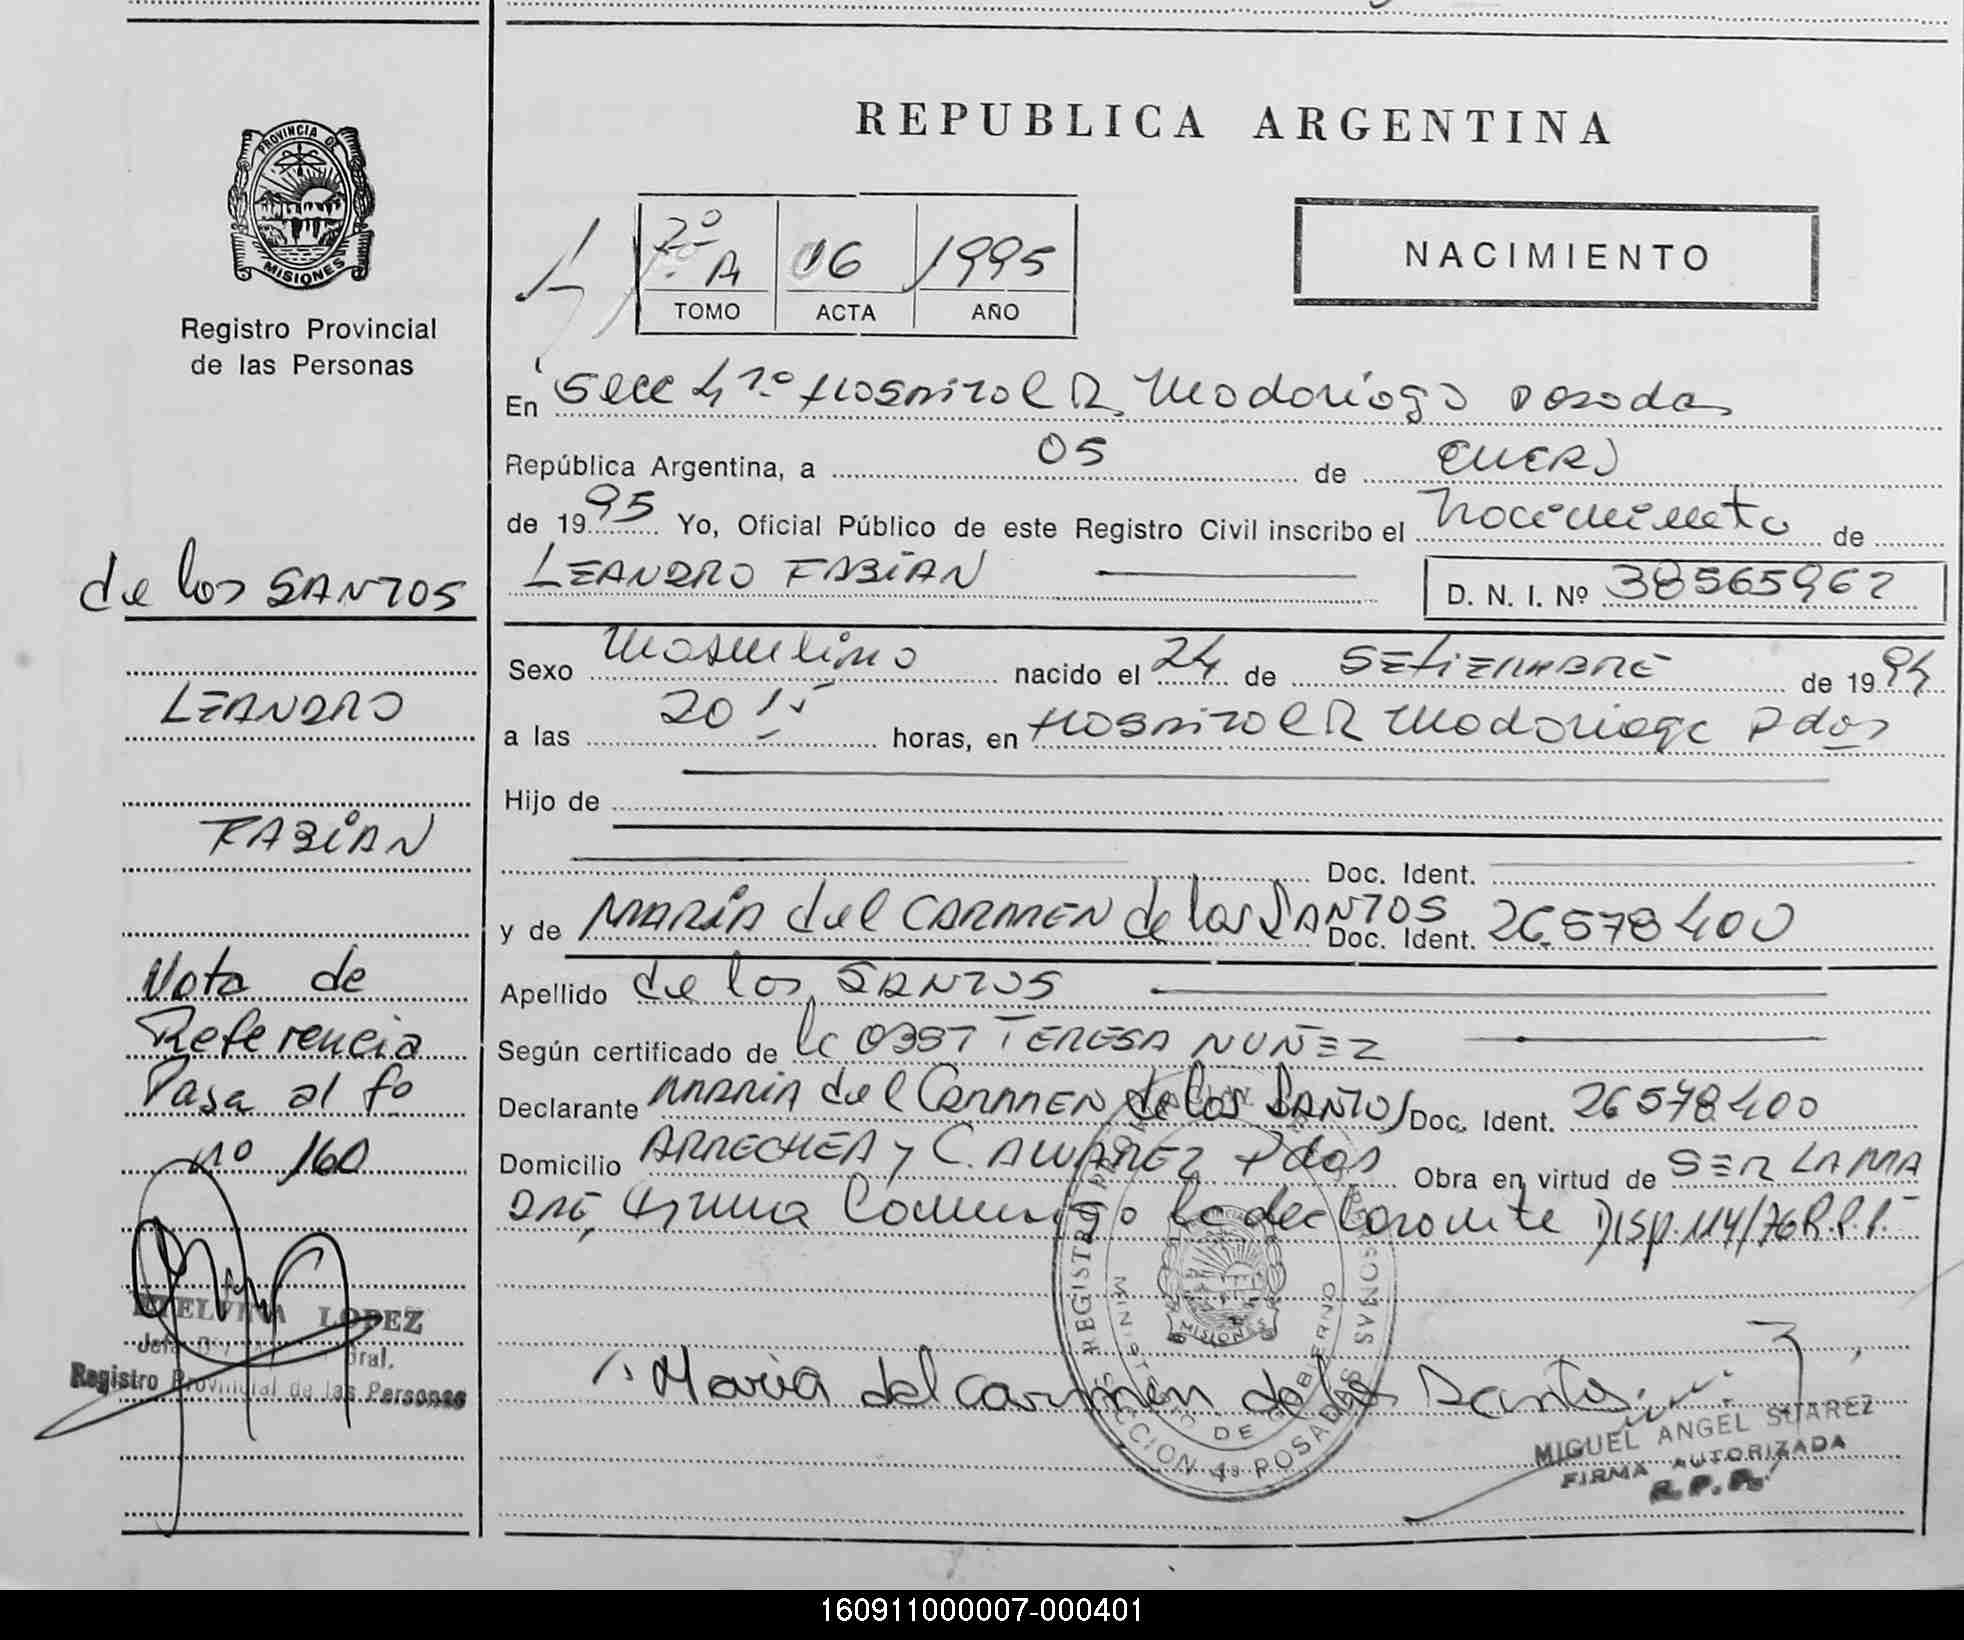 REPUBLICA ARGENTINA
PROVINCIA DE
MISIONES
Registro Provincial
de las Personas
2º A 16 1995
TOMO ACTA AÑO
NACIMIENTO
En Secc 4ª Hospital R. Madariaga Posadas
República Argentina, a 05 de enero
de 1995 Yo, Oficial Público de este Registro Civil inscribo el nacimiento de
LEANDRO FABIAN D. N. I. Nº 38565962
Sexo masculino nacido el 24 de SETIEMBRE de 1994
a las 20 15 horas, en Hospital R Madariaga Pdas
Hijo de
Doc. Ident.
y de MARIA del CARMEN de los SANTOS Doc. Ident. 26.578400
Apellido de los SANTOS
Según certificado de la OBST TERESA NUÑEZ
Declarante MARIA del CARMEN de los SANTOS Doc. Ident. 26578400
Domicilio ARRECHEA y C. ALVAREZ Pdas Obra en virtud de SER LA MA
DRE, firma conmigo la declarante Disp. 114/76 R.P.P.
Maria del carmen de los Santos
MIGUEL ANGEL SUAREZ
FIRMA AUTORIZADA
R.P.P.
MINISTERIO DE GOBIERNO
SECCION 4ª POSADAS
MISIONES
de los SANTOS
LEANDRO
FABIAN
Nota de
Referencia
Pasa al fo
nº 160
LOPEZ
Registro Provincial de las Personas
160911000007-000401